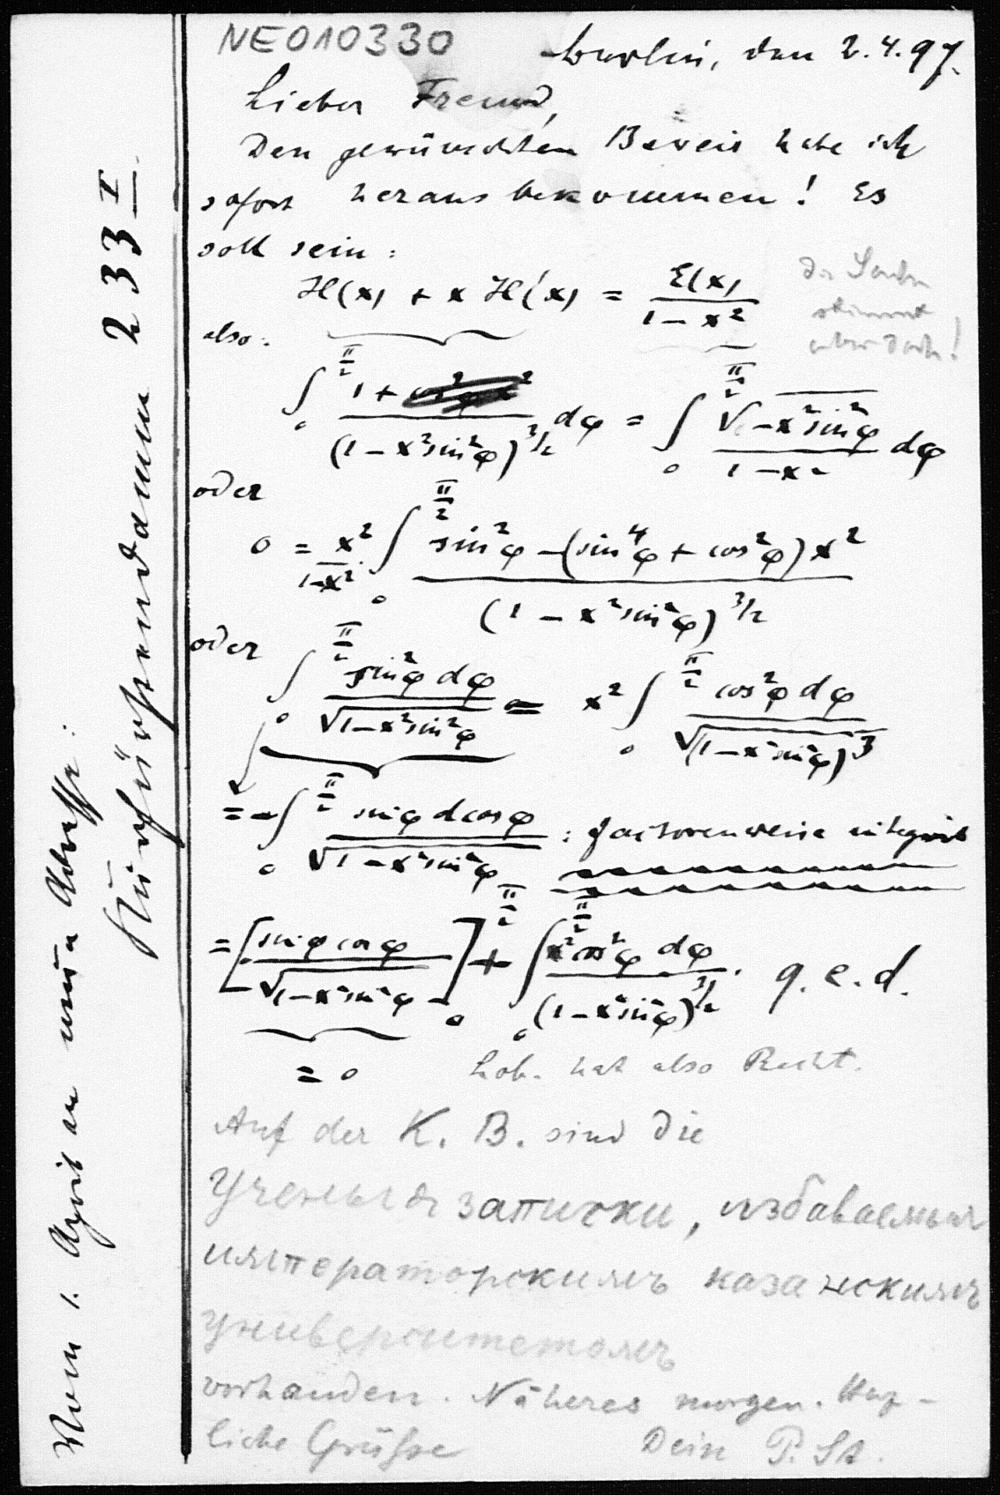 NE010330
Berlin, den 2.4.97.
Lieber Freund,
Den gewünschten Beweis habe ich
sofort herausbekommen! Es
soll sein:
H(x) + x H'(x) = E(x) / (1 − x²)
die Sache
stimmt
aber doch!
also:
∫₀^{π/2} 1 + / (1 − x² sin²φ)^{3/2} dφ = ∫₀^{π/2} √(1 − x² sin²φ) / (1 − x²) dφ
oder
0 = x²/(1−x²) ∫₀^{π/2} sin²φ − (sin⁴φ + cos²φ) x² / (1 − x² sin²φ)^{3/2}
oder
∫₀^{π/2} sin²φ dφ / √(1 − x² sin²φ) = x² ∫₀^{π/2} cos²φ dφ / √(1 − x² sin²φ)³
= − ∫₀^{π/2} sinφ d cosφ / √(1 − x² sin²φ) : factorenweise integrirt
= [− sinφ cosφ / √(1 − x² sin²φ)]₀^{π/2} + ∫₀^{π/2} x² cos²φ dφ / (1 − x² sin²φ)^{3/2} . q.e.d.
= 0 Lob. hat also Recht.
Auf der K. B. sind die
Ученыя записки, издаваемыя
императорскимъ казанскимъ
университетомъ
vorhanden. Näheres morgen. Herz-
liche Grüße Dein P. St.
Vom 1. April an meine Adresse:
Kurfürstendamm 233 I